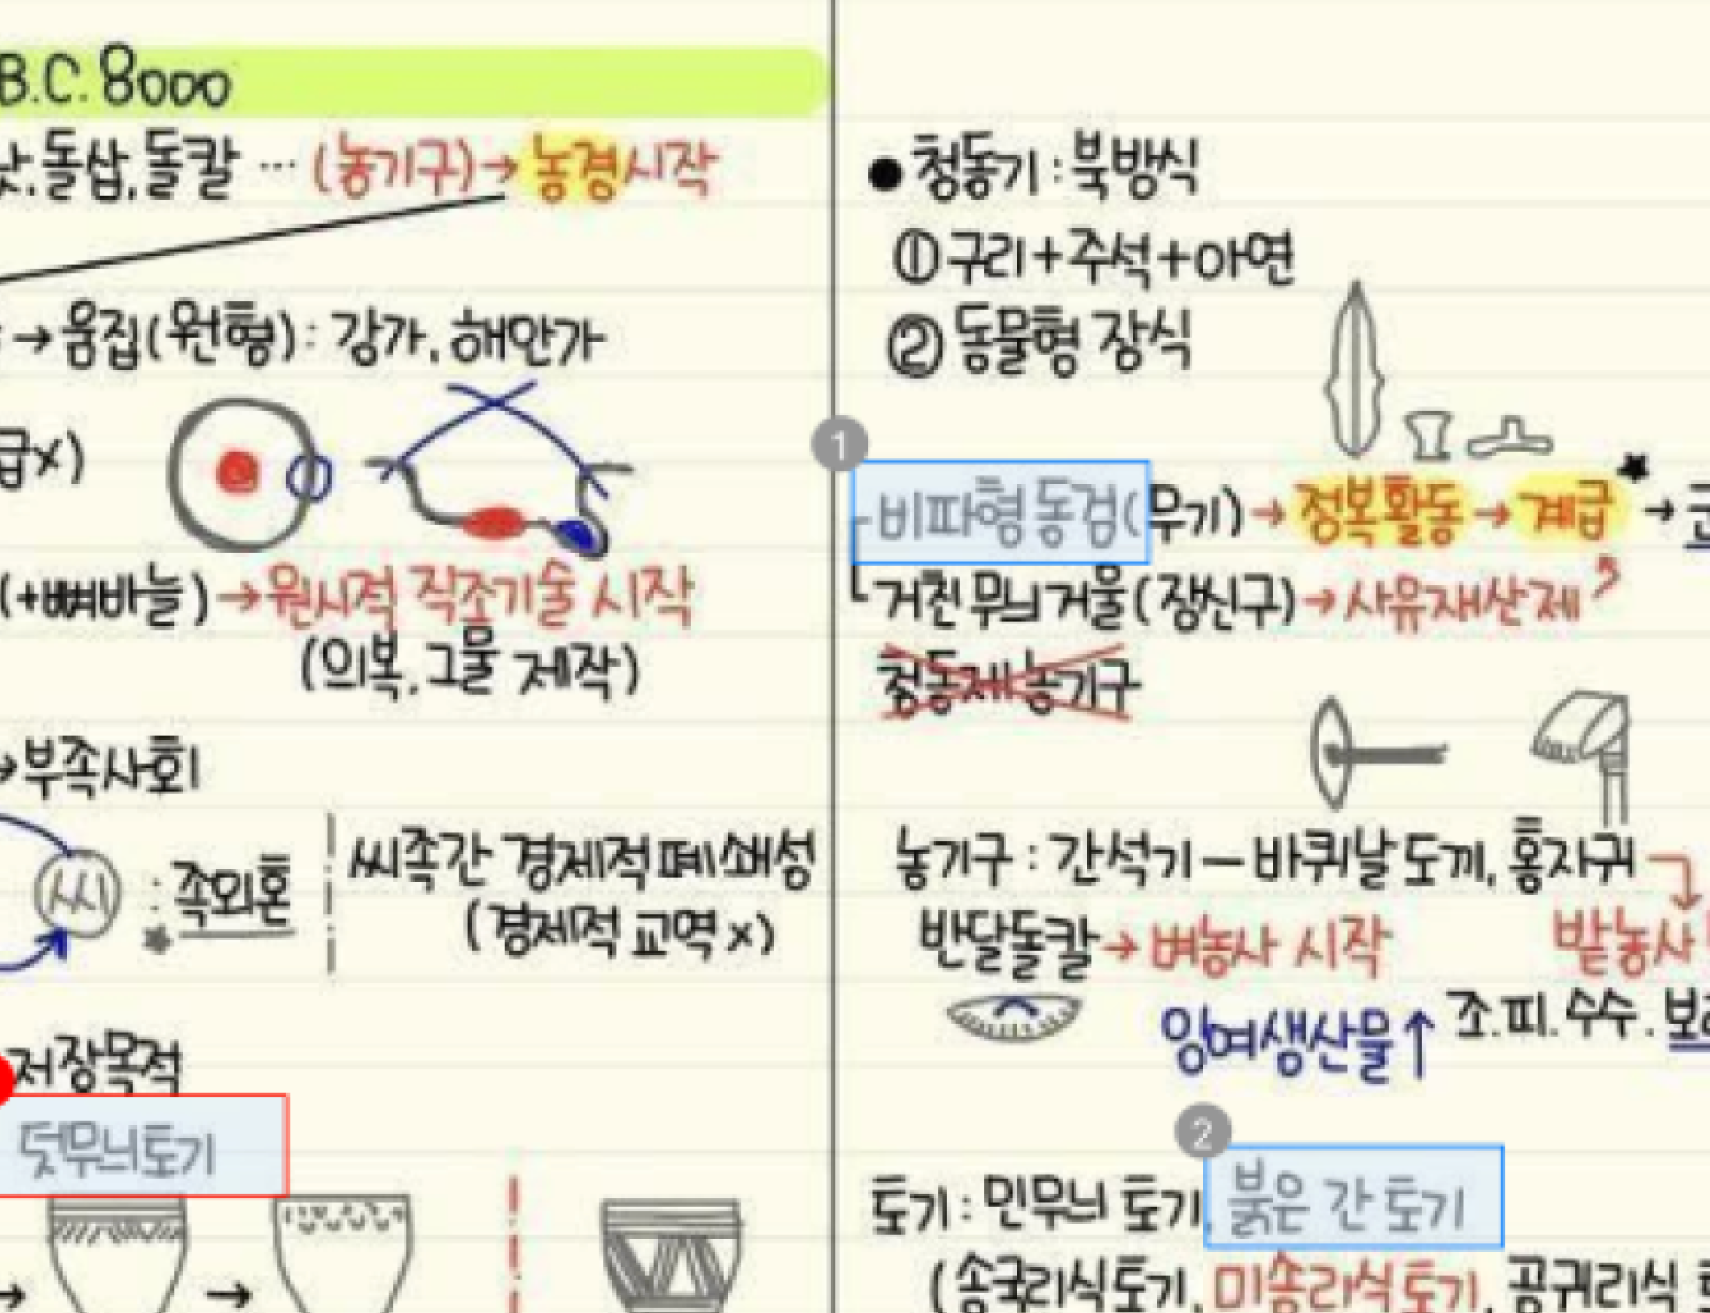 B.C. 8000
낫, 돌삽, 돌칼 … (농기구)→농경시작
→움집(원형): 강가, 해안가
급x)
(+뼈바늘)→원시적 직조기술 시작
(의복, 그물 제작)
→부족사회
씨 : 족외혼
씨족간 경제적 폐쇄성
(경제적 교역 x)
저장목적
덧무늬토기
● 청동기 : 북방식
① 구리+주석+아연
② 동물형 장식
1
비파형동검(무기)→정복활동→계급→
거친무늬거울(장신구)→사유재산제
청동제농기구
농기구 : 간석기 — 바퀴날 도끼, 홈자귀
반달돌칼→벼농사 시작 밭농사
잉여생산물↑ 조.피.수수.보리
2
토기 : 민무늬 토기, 붉은 간 토기
(송국리식토기, 미송리식토기, 공귀리식